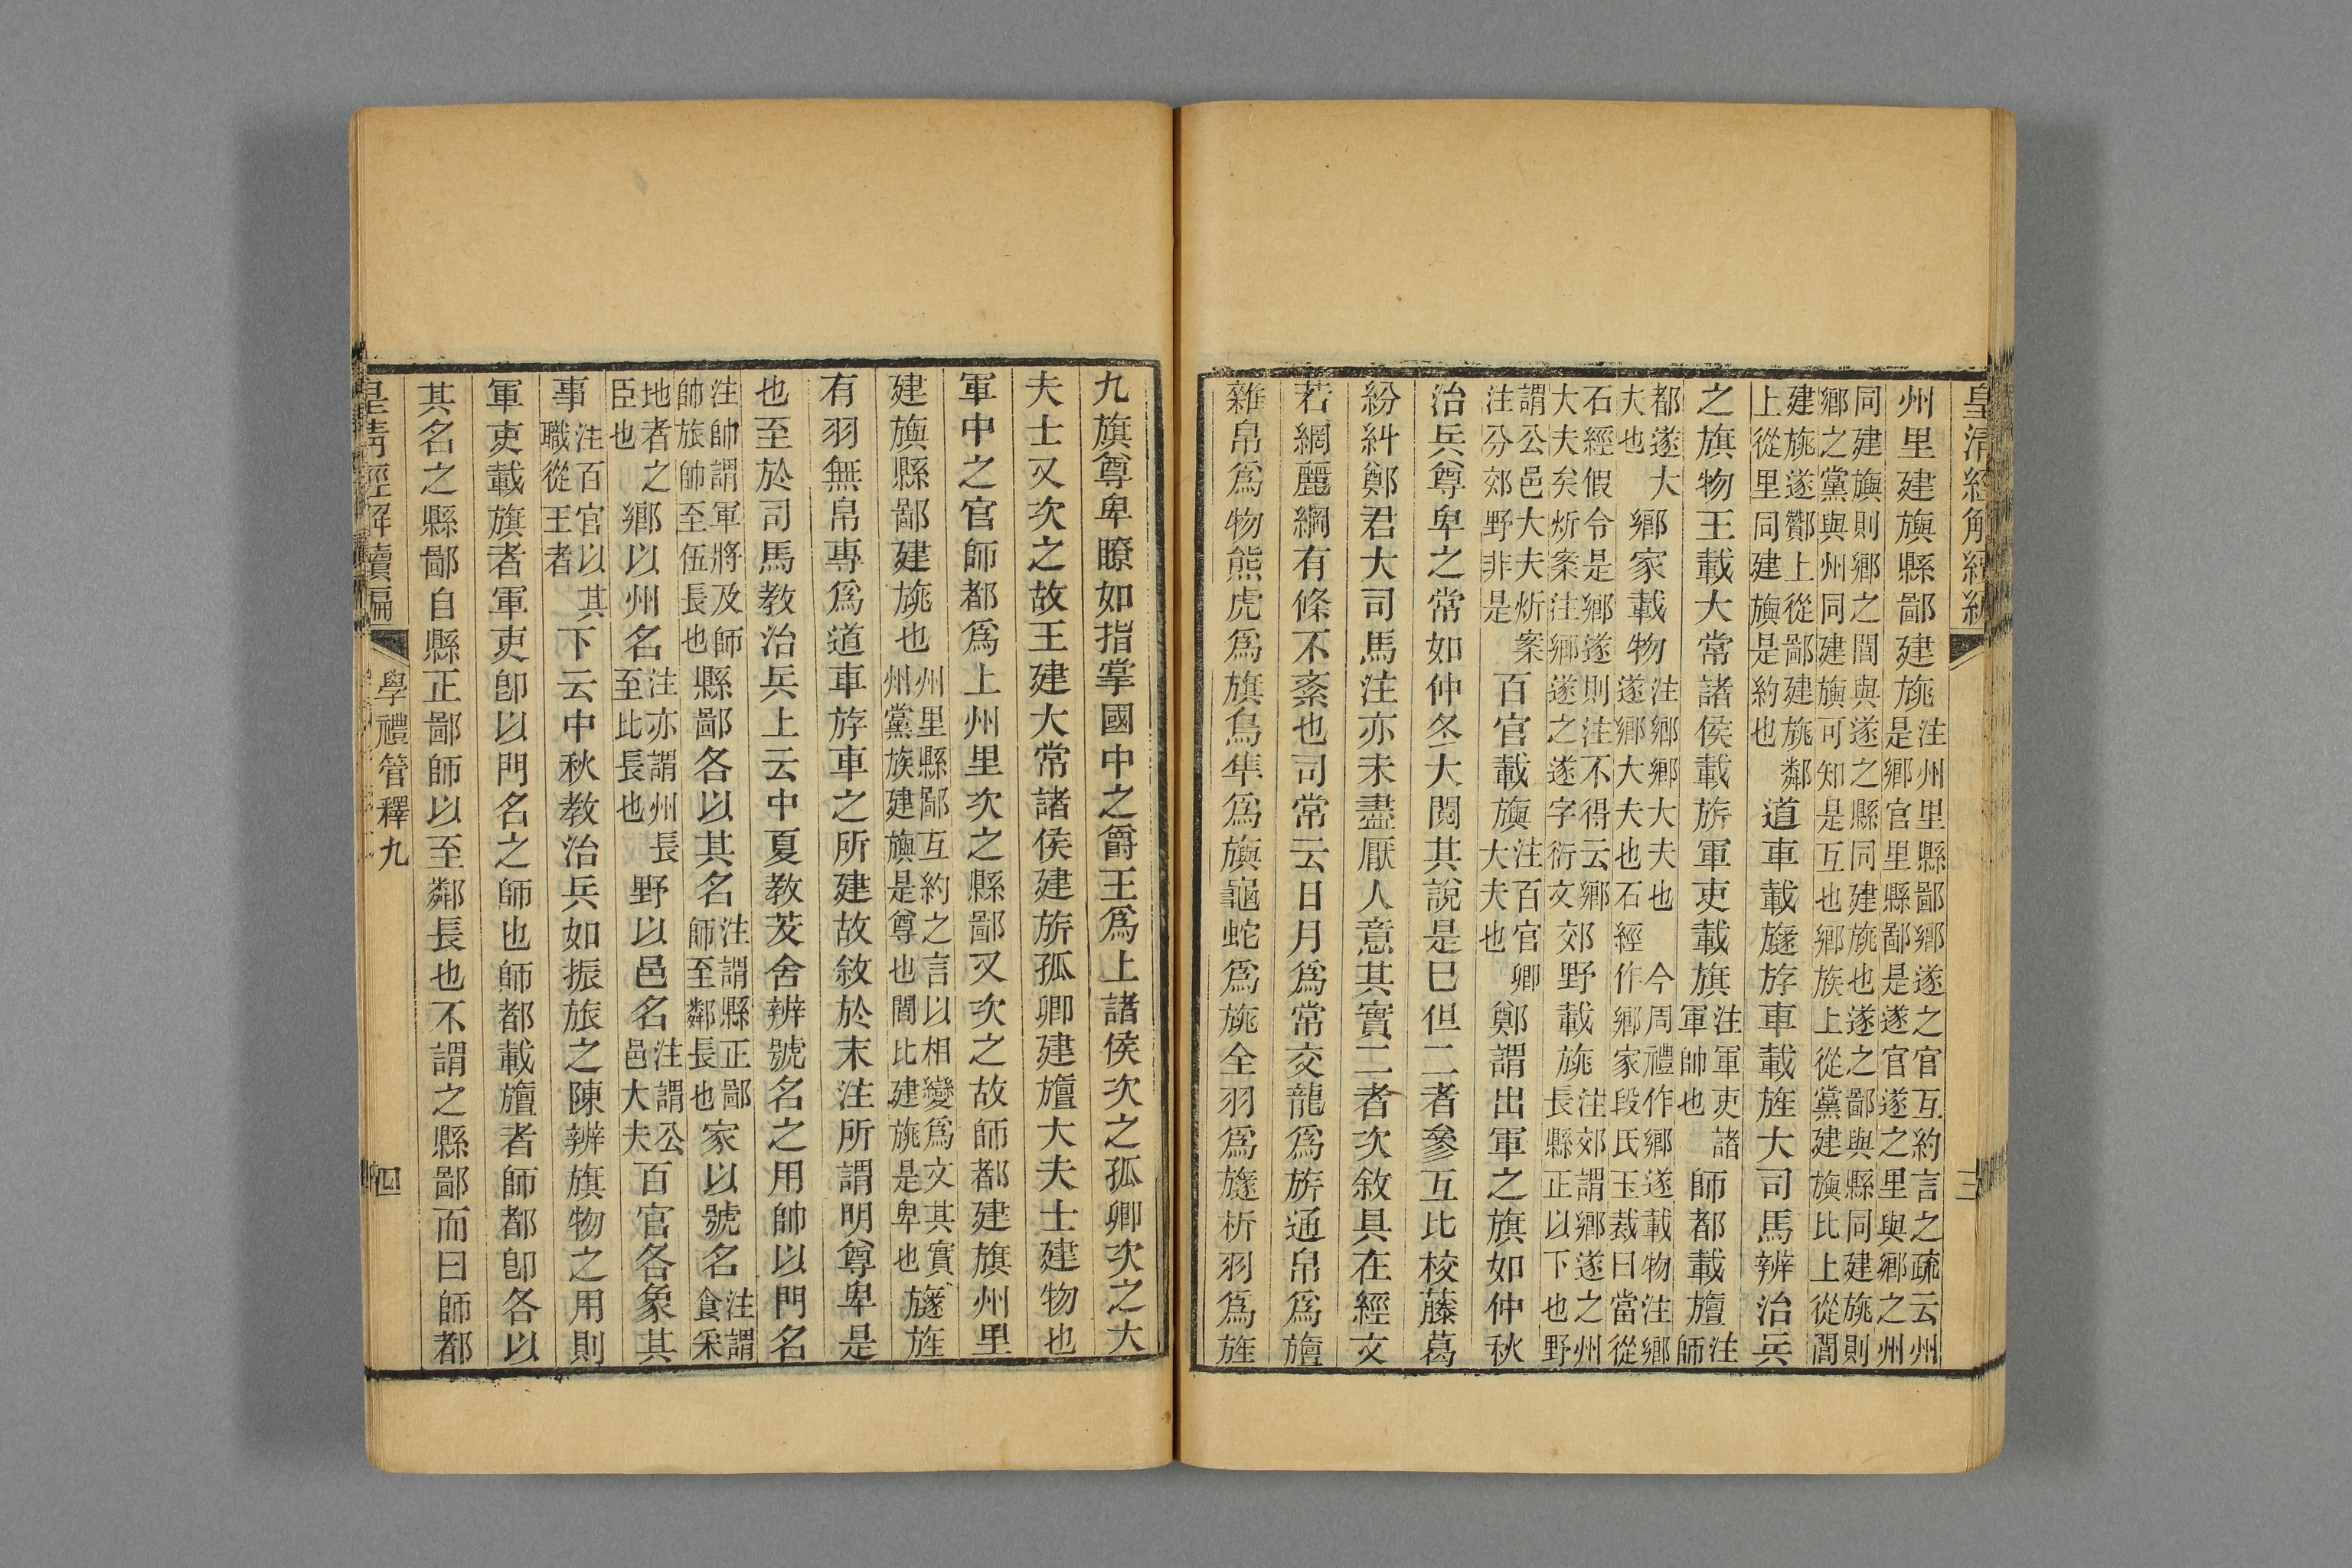 皇清經解續編 三
州里建旟縣鄙建旐注州里縣鄙鄉遂之官互約言之疏云州是鄉官里縣鄙是遂官遂之里與鄉之州
同建旟則鄉之閭與遂之縣同建旐也遂之鄙與縣同建旐則鄉之黨與州同建旟可知是互也鄉族上從黨建旟比上從閭
建旐遂酇上從鄙建旐鄰上從里同建旟是約也道車載旞斿車載旌大司馬辨治兵
之旗物王載大常諸侯載旂軍吏載旗注軍吏諸軍帥也師都載旜注師
都遂大夫也鄉家載物注鄉鄉大夫也今周禮作鄉遂載物注鄉遂鄉大夫也石經作鄉家段氏玉裁曰當從
石經假令是鄉遂則注不得云鄉大夫矣炘案注鄉遂之遂字衍文郊野載旐注郊謂鄉遂之州長縣正以下也野
謂公邑大夫炘案注分郊野非是百官載旟注百官卿大夫也鄭謂出軍之旗如仲秋
治兵尊卑之常如仲冬大閱其說是巳但二者參互比校藤葛
紛糾鄭君大司馬注亦未盡厭人意其實二者次敘具在經文
若網麗綱有條不紊也司常云日月爲常交龍爲旂通帛爲旜
雜帛爲物熊虎爲旗鳥隼爲旟龜蛇爲旐全羽爲旞析羽爲旌
九旗尊卑瞭如指掌國中之爵王爲上諸侯次之孤卿次之大
夫士又次之故王建大常諸侯建旂孤卿建旜大夫士建物也
軍中之官師都爲上州里次之縣鄙又次之故師都建旗州里
建旟縣鄙建旐也州里縣鄙互約之言以相變爲文其實州黨族建旟是尊也閭比建旐是卑也旞旌
有羽無帛專爲道車斿車之所建故敘於末注所謂明尊卑是
也至於司馬教治兵上云中夏教茇舍辨號名之用帥以門名
注帥謂軍將及師帥旅帥至伍長也縣鄙各以其名注謂縣正鄙師至鄰長也家以號名注謂食采
地者之臣也鄉以州名注亦謂州長至比長也野以邑名注謂公邑大夫百官各象其
事注百官以其職從王者下云中秋教治兵如振旅之陳辨旗物之用則
軍吏載旗者軍吏卽以門名之師也師都載旜者師都卽各以
其名之縣鄙自縣正鄙師以至鄰長也不謂之縣鄙而曰師都
皇清經解續編 學禮管釋九 四